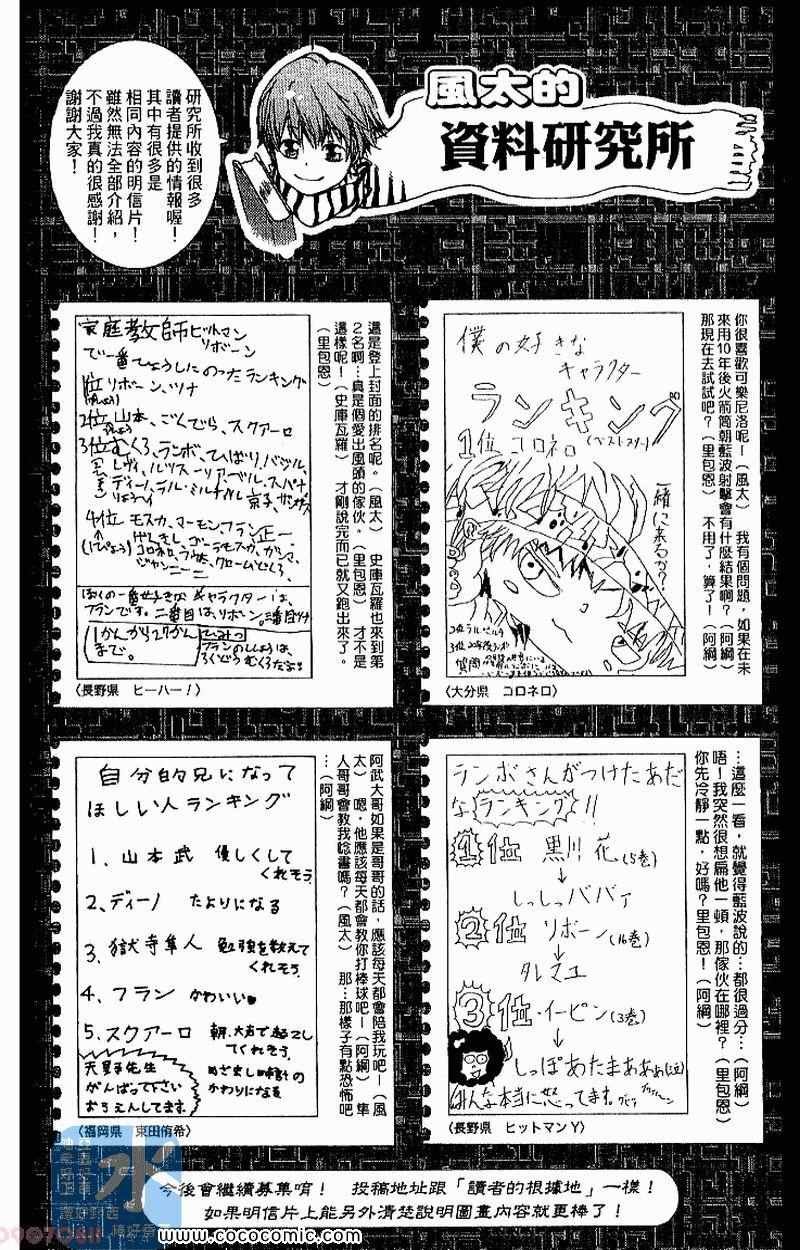 風太的
資料研究所
研究所收到很多
讀者提供的情報喔！
其中有很多是
相同內容的明信片！
雖然無法全部介紹，
不過我真的很感謝！
謝謝大家！
你很喜歡可樂尼洛呢！（風太）　我有個問題，如果在未
來用10年後火箭筒朝藍波射擊會有什麼結果啊？（阿綱）
那現在去試試吧？（里包恩）　不用了，算了！（阿綱）
僕の好きな
キャラクター
ランキング
1位 コロネロ
一緒に来るか？
2位 ラル・ミルチ
質問
（大分県　コロネロ）
這是登上封面的排名呢。（風太）　史庫瓦羅也來到第
2名啊…真是個愛出風頭的傢伙。（里包恩）　才不是
這樣呢！（史庫瓦羅）　才剛說完而已就又跑出來了。
（里包恩）
家庭教師ヒットマン
リボーン
で一番ひょうしにのったランキング
1位 リボーン、ツナ
2位 山本、ごくでら、スクアーロ
3位 むくろ、ランボ、ひばり、バジル、
レヴィ、ルッスーリア、ベル、スパナ
ディーノ、ラル・ミルチ、京子、ザンザス
りょうへい
4位 モスカ、マーモン、フラン、正一
げんきし、ゴーラモスカ、ガンマ、
コロネロ、フゥ太、クロームどくろ、
ジャンニーニ
ぼくの一番せ好きなキャラクターは、
フランです。二番目は、リボーン。三番目ツナ
1かんから27かん
まで。
ひみつ
フランのししょうは、
ろくどうむくろだよ
（長野県　ヒーハー！）
…這麼一看，就覺得藍波說的…都很過分…（阿綱）
唔！我突然很想扁他一頓，那傢伙在哪裡？（里包恩）
你先冷靜一點，好嗎？里包恩！（阿綱）
ランボさんがつけたあだ
なランキング!!
1位 黒川 花（5巻）
↓
しっしっババァ
2位 リボーン（16巻）
↓
タレマユ
3位・イーピン（3巻）
↓
しっぽあたまあぁぁ
みんな本当に怒ってます。
（長野県　ヒットマンY）
阿武大哥如果是哥哥的話，應該每天都會陪我玩吧！（風
太）　嗯，他應該每天都會教你打棒球吧！（阿綱）　隼
人哥哥會教我唸書嗎？（風太）　那…那樣子有點恐怖吧
…（阿綱）
自分的兄になって
ほしい人ランキング
1、山本武　優しくして
くれそう
2、ディーノ　たよりになる
3、獄寺隼人　勉強を教えて
くれそう。
4、フラン　かわいい♥
5、スクアーロ　朝、大声で起こし
てくれそう。
めざまし時計の
かわりになる
天野先生
がんばって下さい
おうえんしてます。
（福岡県　東田侑希）
今後會繼續募集唷！　投稿地址跟「讀者的根據地」一樣！
如果明信片上能另外清楚說明圖畫內容就更棒了！
水
www.cococomic.com